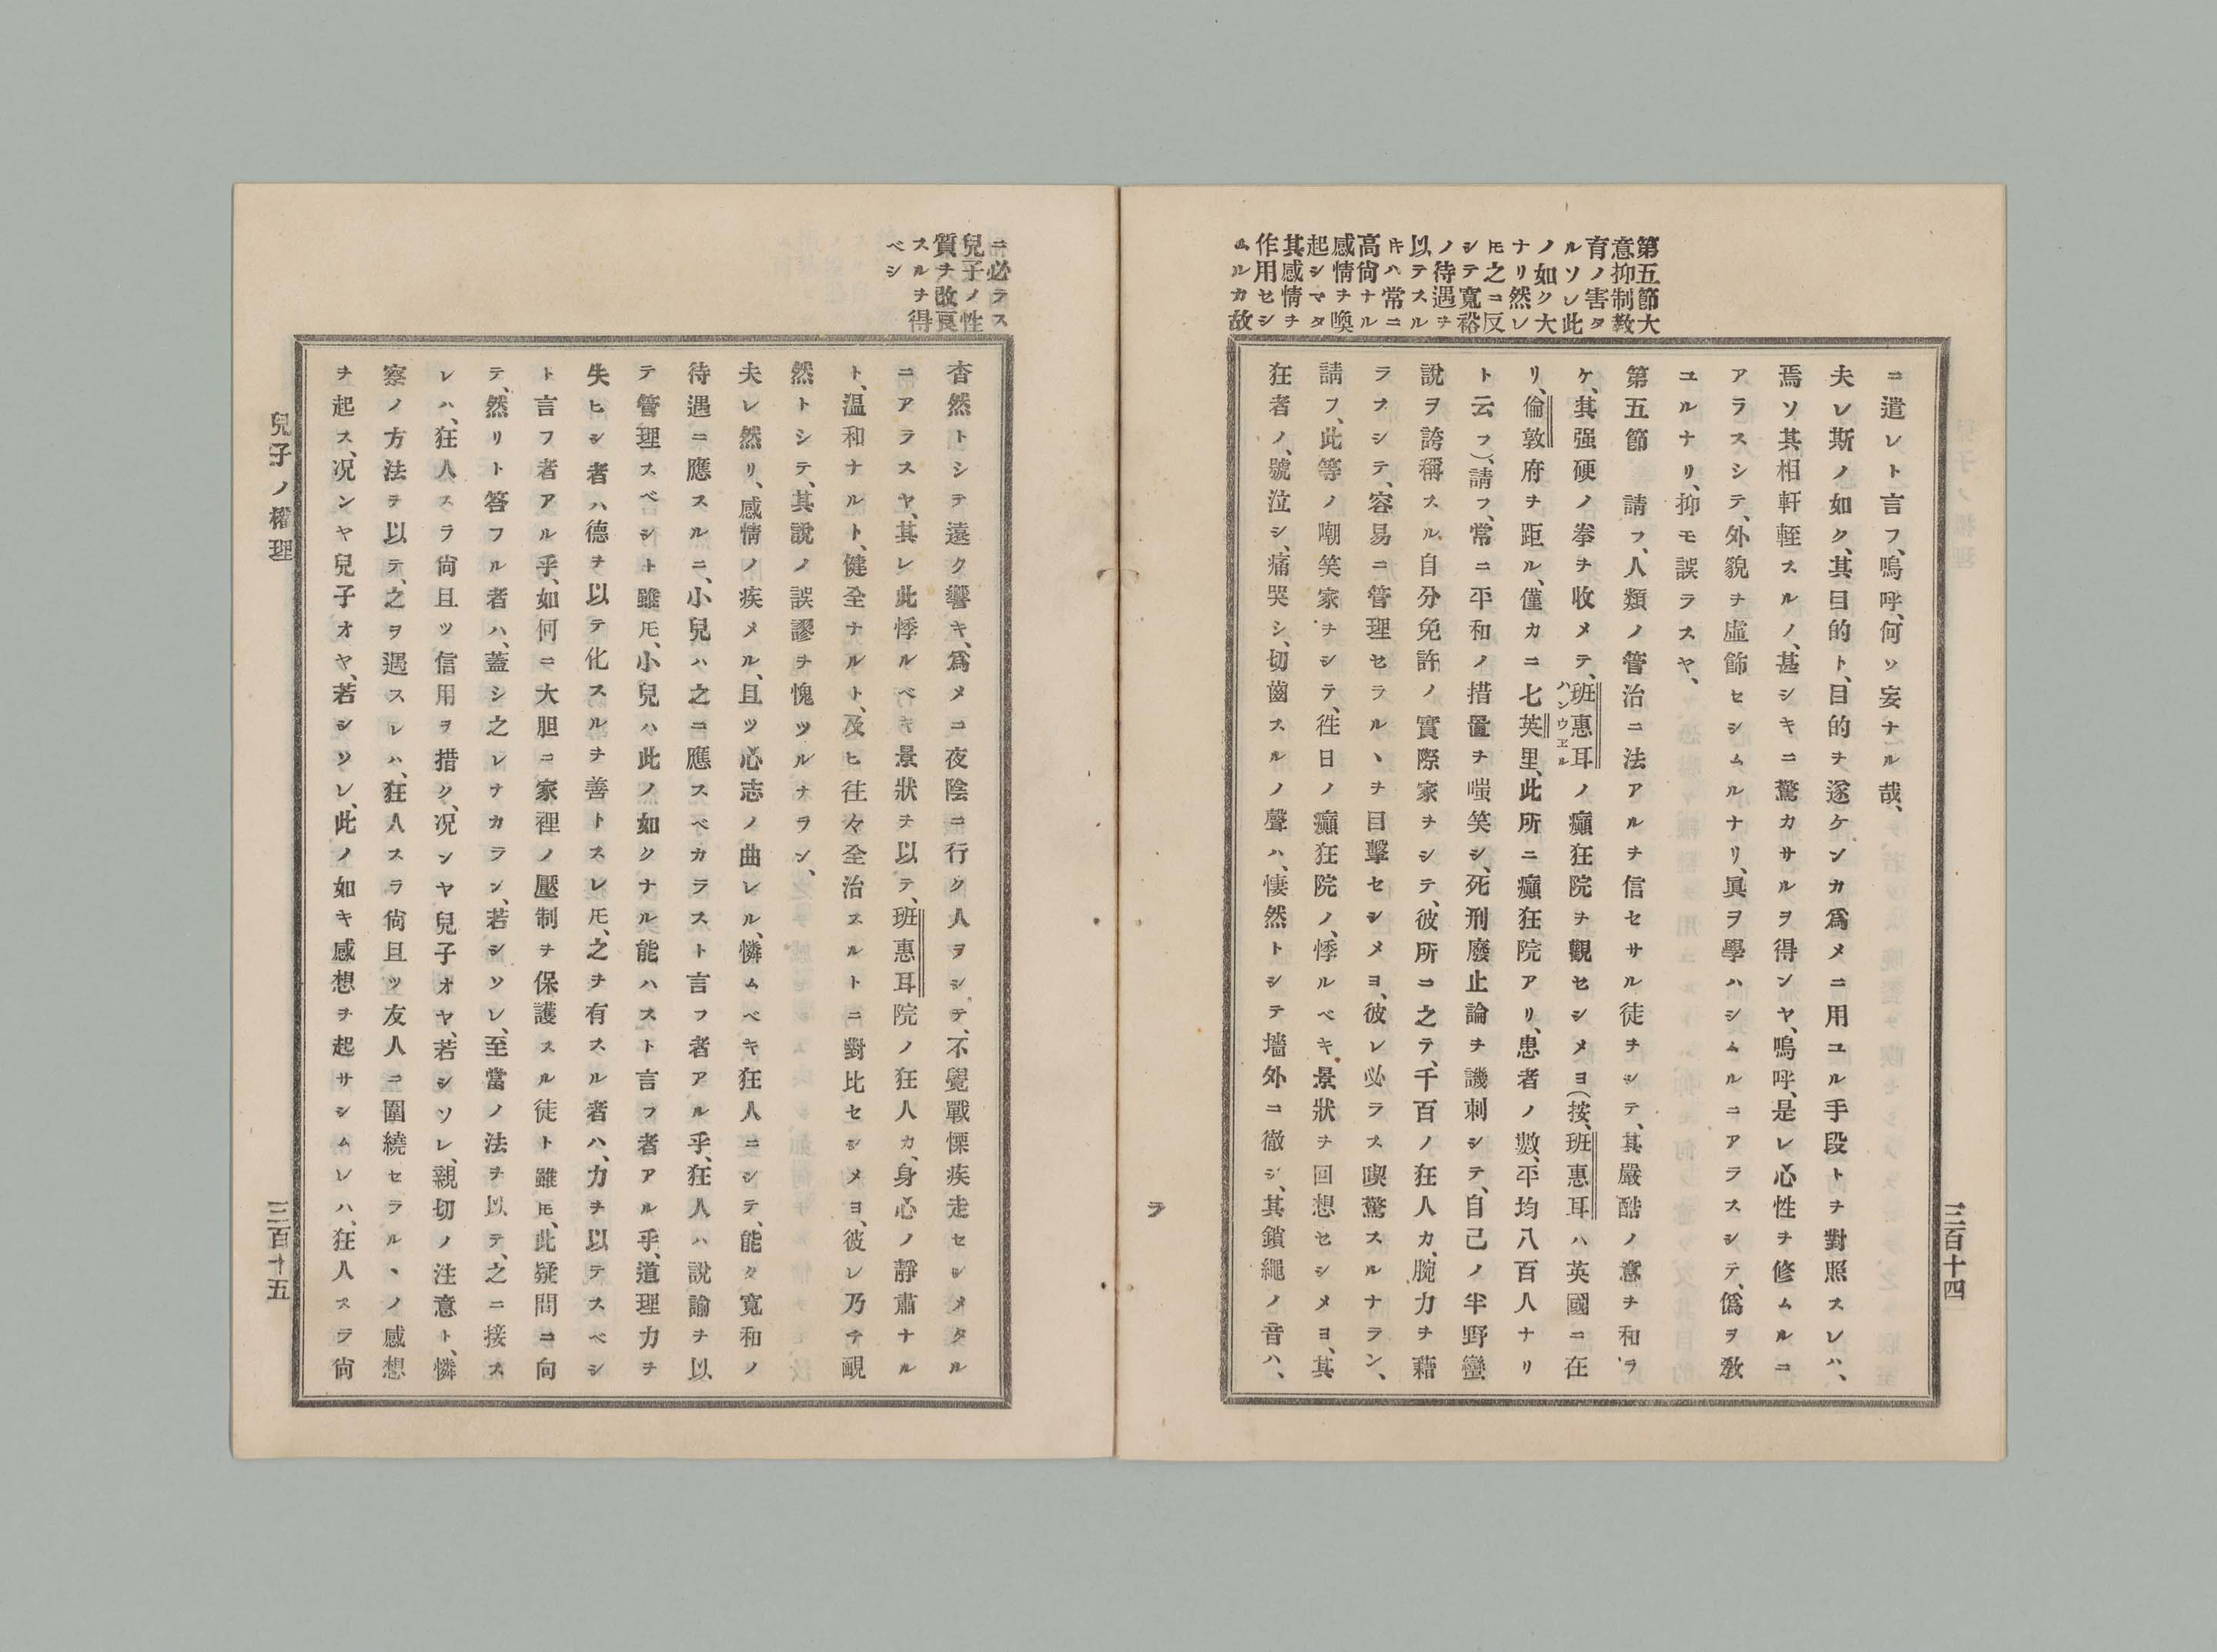 第五節大
意抑制教
育ノ害タ
ルソレ此
ノ如ク大
ナリ然レ
𪜈之ニ反
シテ寬裕
ノ待遇ヲ
以テスル
キハ常ニ
高尙ナル
感情ヲ喚
起シマタ
其感情ヲ
作用セシ
ムルカ故
ニ遣レト言フ、嗚呼、何ソ妄ナル哉、
夫レ斯ノ如ク、其目的ト、目的ヲ遂ケンカ爲メニ用ユル手段トヲ對照スレハ、
焉ソ其相軒輊スルノ、甚シキニ驚カサルヲ得ンヤ、嗚呼、是レ心性ヲ修ムルニ
アラスシテ、外貌ヲ虛飾セシムルナリ、眞ヲ學ハシムルニアラスシテ、僞ヲ敎
ユルナリ、抑モ誤ラスヤ、
第五節　請フ、人類ノ管治ニ法アルヲ信セサル徒ヲシテ、其嚴酷ノ意ヲ和ラ
ケ、其强硬ノ拳ヲ收メテ、班惠耳ノ癲狂院ヲ觀セシメヨ（按、班惠耳ハ英國ニ在
ハンウヱル
リ、倫敦府ヲ距ル、僅カニ七英里、此所ニ癲狂院アリ、患者ノ數、平均八百人ナリ
ト云フ）、請フ、常ニ平和ノ措置ヲ嗤笑シ、死刑廢止論ヲ譏刺シテ、自己ノ半野蠻
說ヲ誇稱スル、自分免許ノ實際家ヲシテ、彼所ニ之テ、千百ノ狂人カ、腕力ヲ藉
ラズシテ、容易ニ管理セラルヽヲ目擊セシメヨ、彼レ必ラス喫驚スルナラン、
請フ、此等ノ嘲笑家ヲシテ、徃日ノ癲狂院ノ、悸ルベキ景狀ヲ回想セシメヨ、其
狂者ノ、號泣シ、痛哭シ、切齒スルノ聲ハ、悽然トシテ墻外ニ徹シ、其鎖繩ノ音ハ、
三百十四
ヲ
ニ必ラス
兒子ノ性
質ヲ改良
スルヲ得
ベシ
杳然トシテ遠ク響キ、爲メニ夜陰ニ行ク人ヲシテ、不覺戰慄疾走セシメタル
ニアラスヤ、其レ此悸ルベキ景狀ヲ以テ、班惠耳院ノ狂人カ、身心ノ靜肅ナル
ト、温和ナルト、健全ナルト、及ヒ往々全治スルトニ對比セシメヨ、彼レ乃チ覥
然トシテ、其說ノ誤謬ヲ愧ツルナラン、
夫レ然リ、感情ノ疾メル、且ツ心志ノ曲レル、憐ムベキ狂人ニシテ、能ク寬和ノ
待遇ニ應スルニ、小兒ハ之ニ應スベカラスト言フ者アル乎、狂人ハ說諭ヲ以
テ管理スベシト雖𪜈、小兒ハ此ノ如クナル能ハスト言フ者アル乎、道理力ヲ
失ヒシ者ハ德ヲ以テ化スルヲ善トスレ𪜈、之ヲ有スル者ハ、力ヲ以テスベシ
ト言フ者アル乎、如何ニ大胆ニ家裡ノ壓制ヲ保護スル徒ト雖𪜈、此疑問ニ向
テ、然リト答フル者ハ、蓋シ之レナカラン、若シソレ、至當ノ法ヲ以テ、之ニ接ス
レハ、狂人スラ尙且ツ信用ヲ措ク、况ンヤ兒子オヤ、若シソレ、親切ノ注意ト、憐
察ノ方法ヲ以テ、之ヲ遇スレハ、狂人スラ尙且ツ友人ニ圍繞セラルヽノ感想
ヲ起ス、况ンヤ兒子オヤ、若シソレ、此ノ如キ感想ヲ起サシムレハ、狂人スラ尙
兒子ノ權理
三百十五